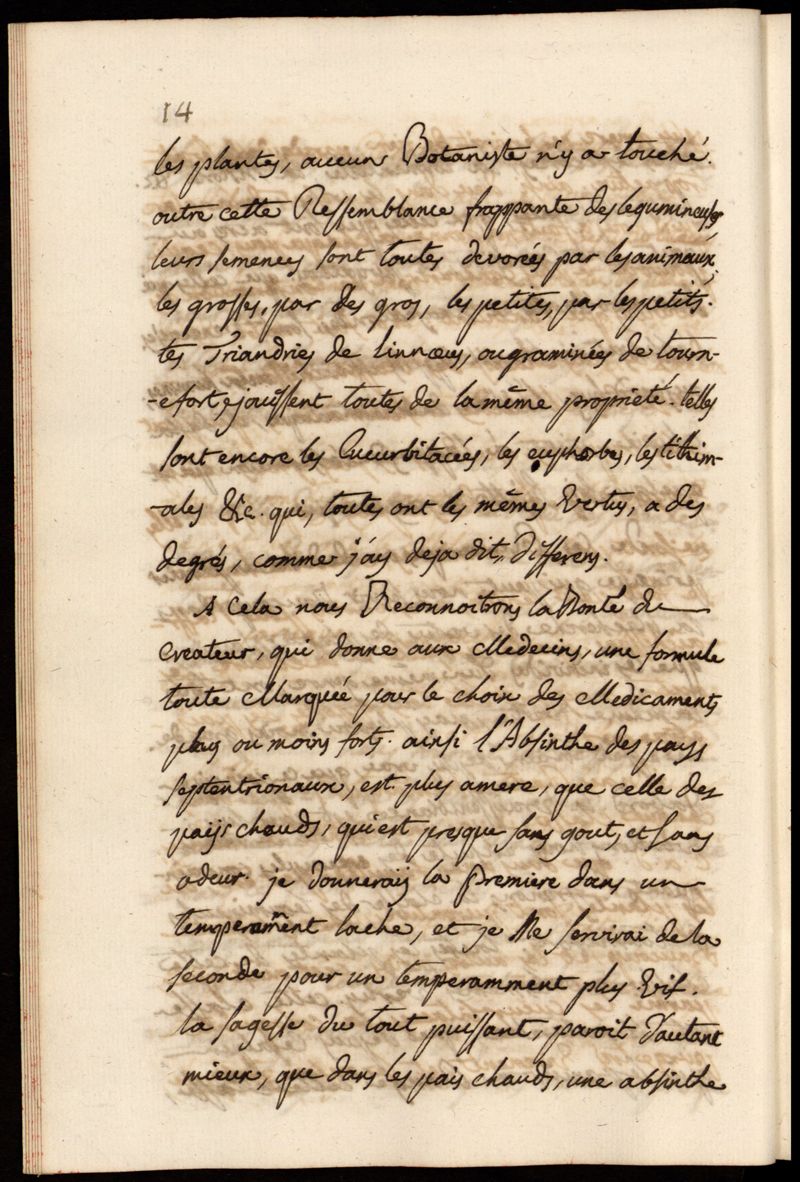 14
les plantes, aucun Botaniste n'y a touché.
outre cette Ressemblance frappante des legumineuses,
leurs semences sont toutes devorées par les animaux,
les grosses, par des gros, les petites, par les petits.
les Triandries de linnœus, ou graminées de tourn-
-efort, jouissent toutes de la même proprieté. telles
sont encore les Cucurbitacées, les euphorbes, les tithim-
-ales &c. qui, toutes ont les mêmes Vertus, a des
degrés, comme j'ay deja dit, differens.
A Cela nous Reconnoitrons la Bonté du
createur, qui donne aux Medecins, une formule
toute Marquée pour le choix des Medicaments
plus ou moins forts. ainsi l'Absinthe des pays
septentrionaux, est plus amere, que celle des
païs chauds, qui est presque sans gout, et sans
odeur. je donneraij la premiere dans un
temperamment lache, et je Me servirai de la
seconde pour un temperamment plus Vif.
la sagesse du tout puissant, paroit d'autant
mieux, que dans les païs chauds, une absinthe